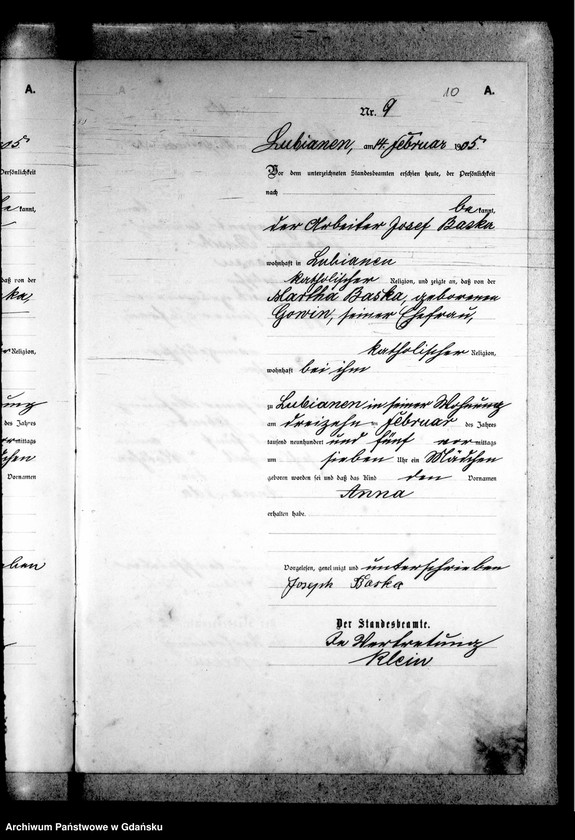 A.
10 A.
Nr. 9
Lubianen, am 14. Februar 1905.
Vor dem unterzeichneten Standesbeamten erschien heute, der Persönlichkeit
nach
bekannt,
der Arbeiter Josef Baska
wohnhaft in Lubianen
katholischer Religion, und zeigte an, daß von der
Martha Baska, geborenen
Gowin, seiner Ehefrau,
katholischer Religion,
wohnhaft bei ihm
zu Lubianen in seiner Wohnung
am dreizehn Februar des Jahres
tausend neunhundert und fünf vormittags
um sieben Uhr ein Mädchen
geboren worden sei und daß das Kind den Vornamen
Anna
erhalten habe.
Vorgelesen, genehmigt und unterschrieben
Joseph Baska
Der Standesbeamte.
In Vertretung
Klein
05.
Persönlichkeit
kannt,
daß von der
ka,
Religion,
des Jahres
mittags
Vornamen
ben
Archiwum Państwowe w Gdańsku